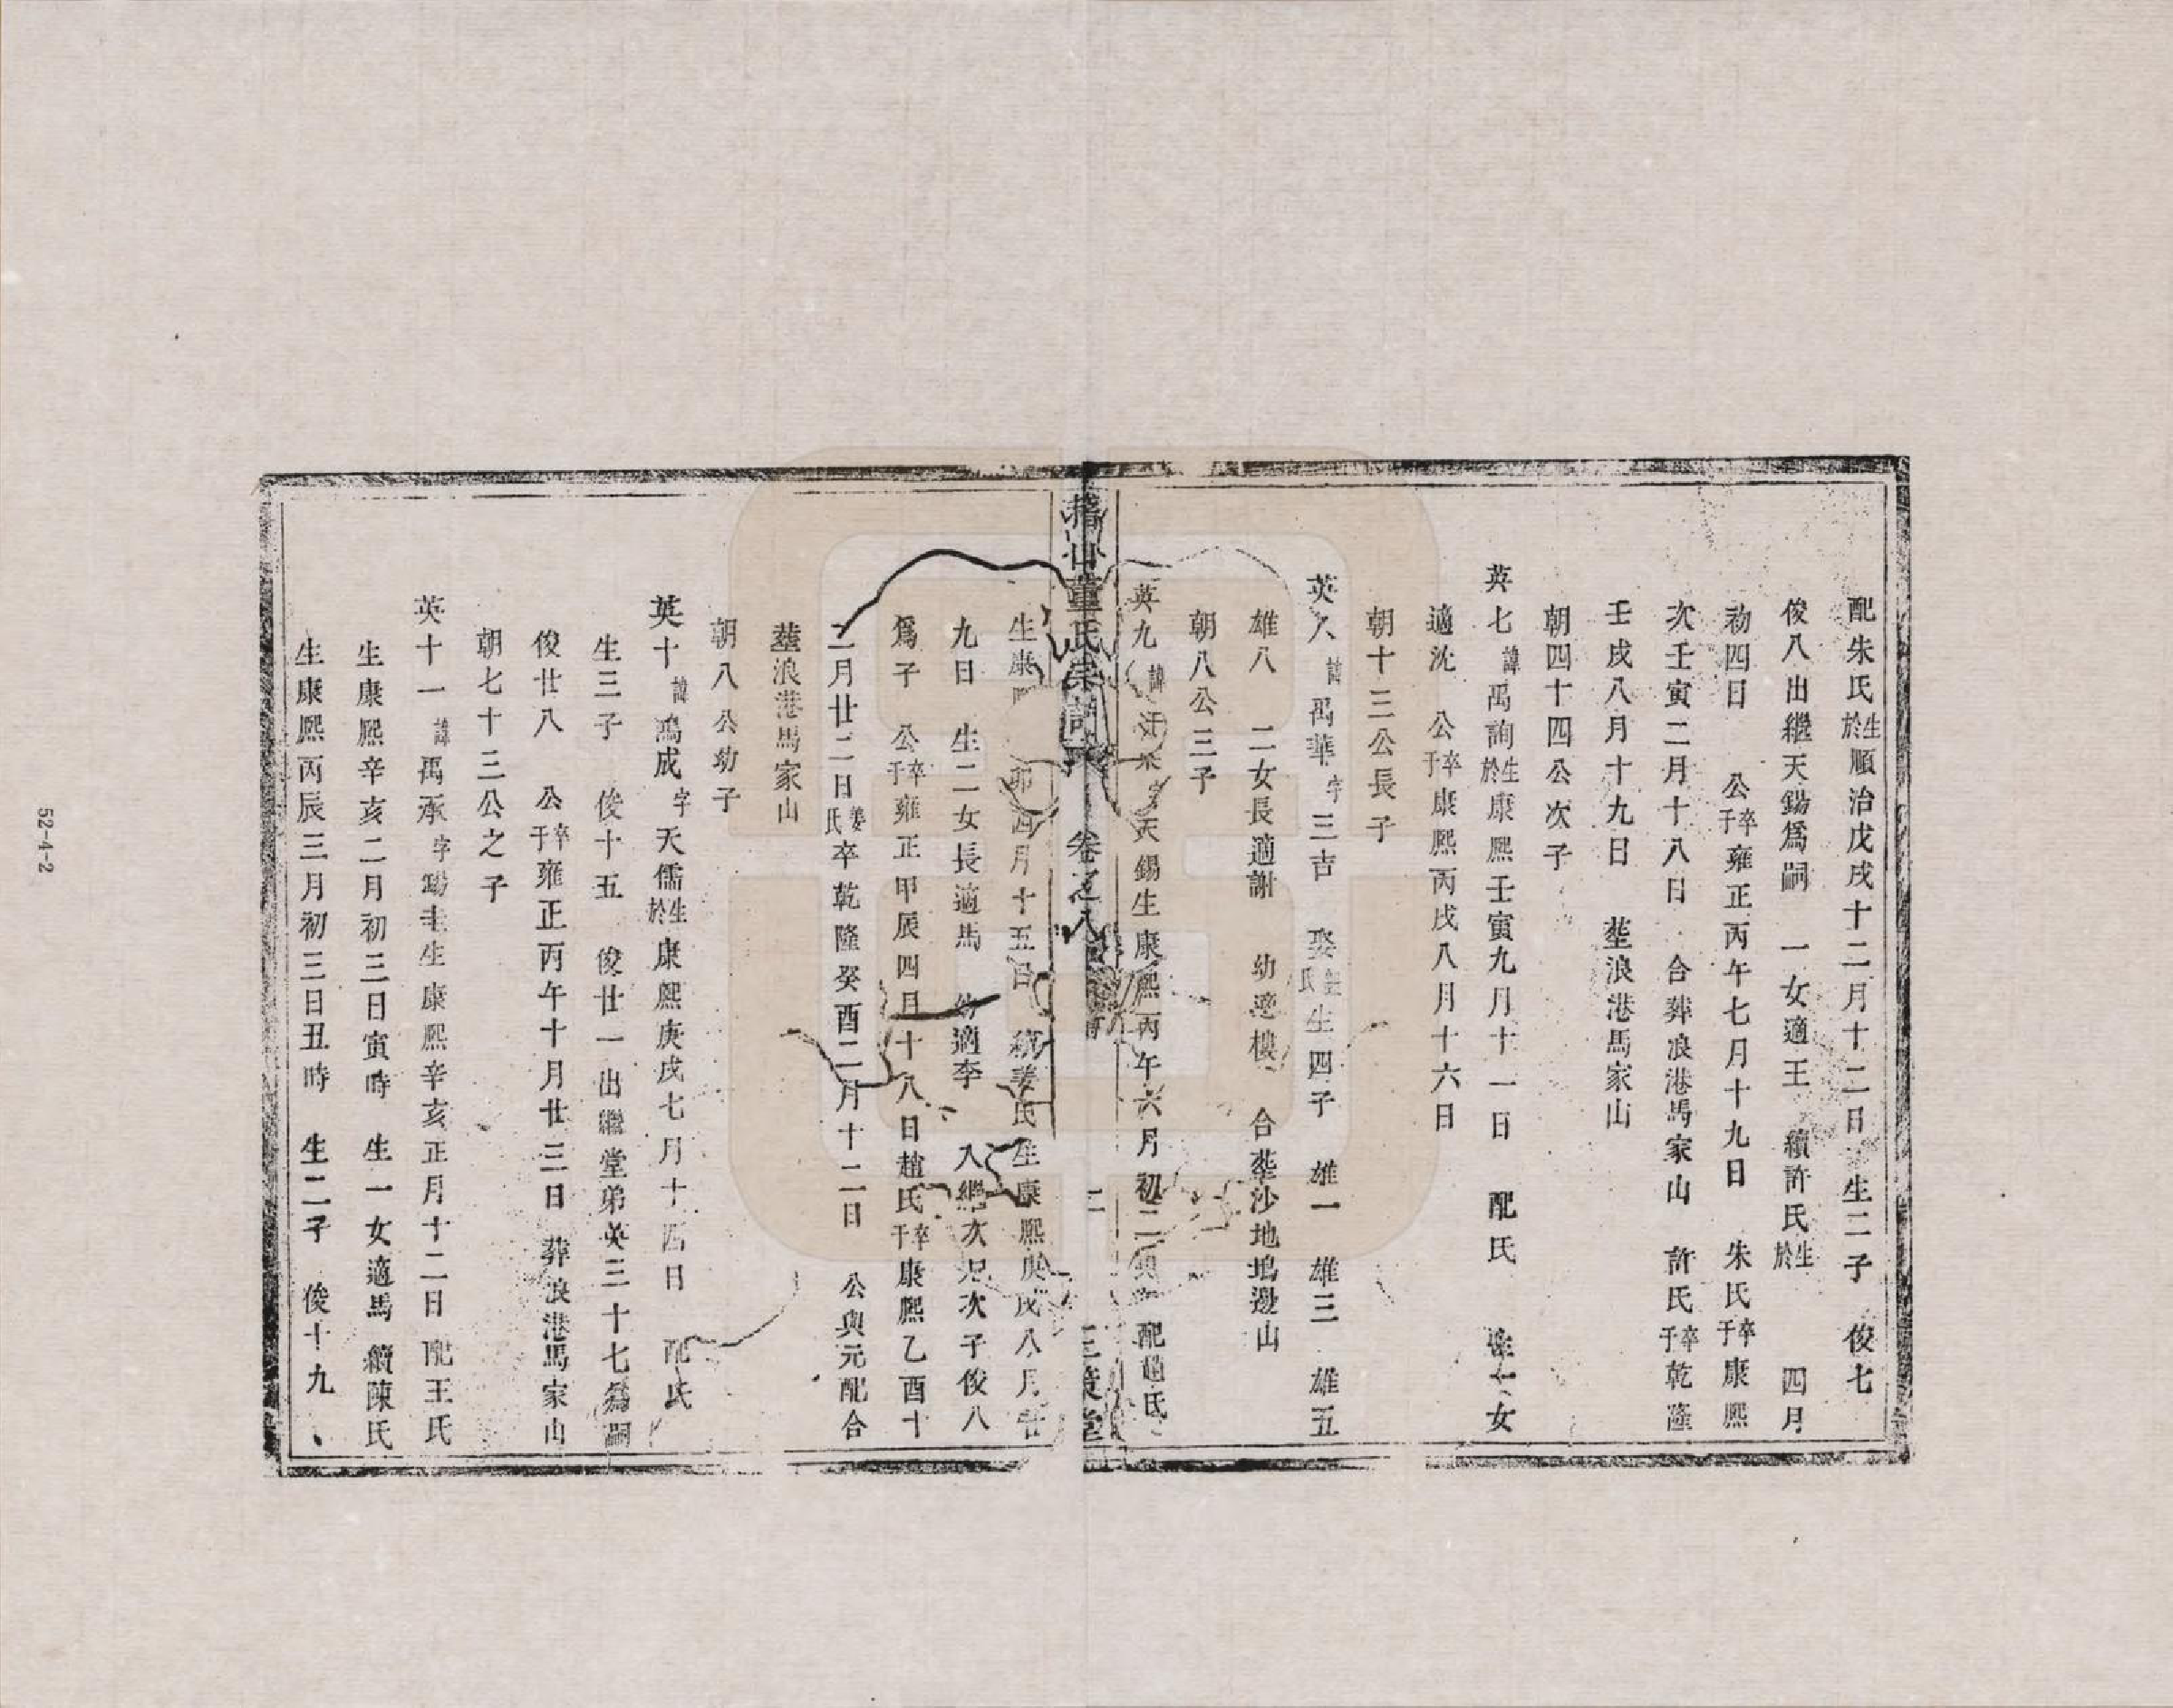 配朱氏生於順治戊戌十二月十二日 生二子 俊七
俊八出繼天錫爲嗣 一女適王 續許氏生於 四月
初四日 公卒于雍正丙午七月十九日 朱氏卒于康熙
次壬寅二月十八日 合葬浪港馬家山 許氏卒于乾隆
壬戌八月十九日 塟浪港馬家山
朝四十四公次子
英七諱禹詢生於康熙壬寅九月十一日 配氏 生一女
適沈 公卒于康熙丙戌八月十六日
朝十三公長子
英八諱禹華字三吉 娶氏生四子 雄一 雄三 雄五
雄八 二女長適謝 幼適樓 合塟沙地塢邊山
朝八公三子
英九諱字天錫生康熙丙午六月初二 配趙氏
稽山董氏宗譜 卷之八 二 三策堂
生康 卯四月十五日 續姜氏生康熙庚戌八月廿
九日 生二女長適馬 幼適李 入繼次兄次子俊八
爲子 公卒于雍正甲辰四月十八日趙氏卒于康熙乙酉十
二月廿二日姜氏卒乾隆癸酉二月十二日 公與元配合
塟浪港馬家山
朝八公幼子
英十諱鴻成字天儒生於康熙庚戌七月十四日 配氏
生三子 俊十五 俊廿一出繼堂弟英三十七爲嗣
俊廿八 公卒于雍正丙午十月廿三日 葬浪港馬家山
朝七十三公之子
英十一諱禹承字生康熙辛亥正月十二日 配王氏
生康熙辛亥二月初三日寅時 生一女適馬 續陳氏
生康熙丙辰三月初三日丑時 生二子 俊十九、
52-4-2